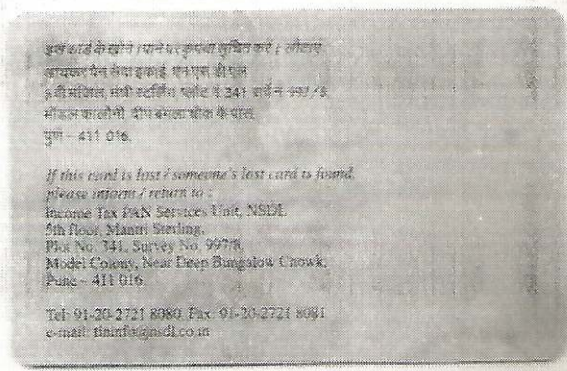 इस कार्ड के खोने / पाने पर कृपया सूचित करें / लौटाएं
आयकर पैन सेवा इकाई, एन एस डी एल
५ वी मंजिल, मंत्री स्टर्लिंग, प्लॉट नं. 341, सर्वे नं. 997/8,
मॉडल कालोनी, दीप बंगला चौक के पास,
पुणे – 411 016.
If this card is lost / someone's lost card is found,
please inform / return to :
Income Tax PAN Services Unit, NSDL
5th floor, Mantri Sterling,
Plot No. 341, Survey No. 997/8,
Model Colony, Near Deep Bungalow Chowk,
Pune – 411 016.
Tel: 91-20-2721 8080, Fax: 91-20-2721 8081
e-mail: tininfo@nsdl.co.in